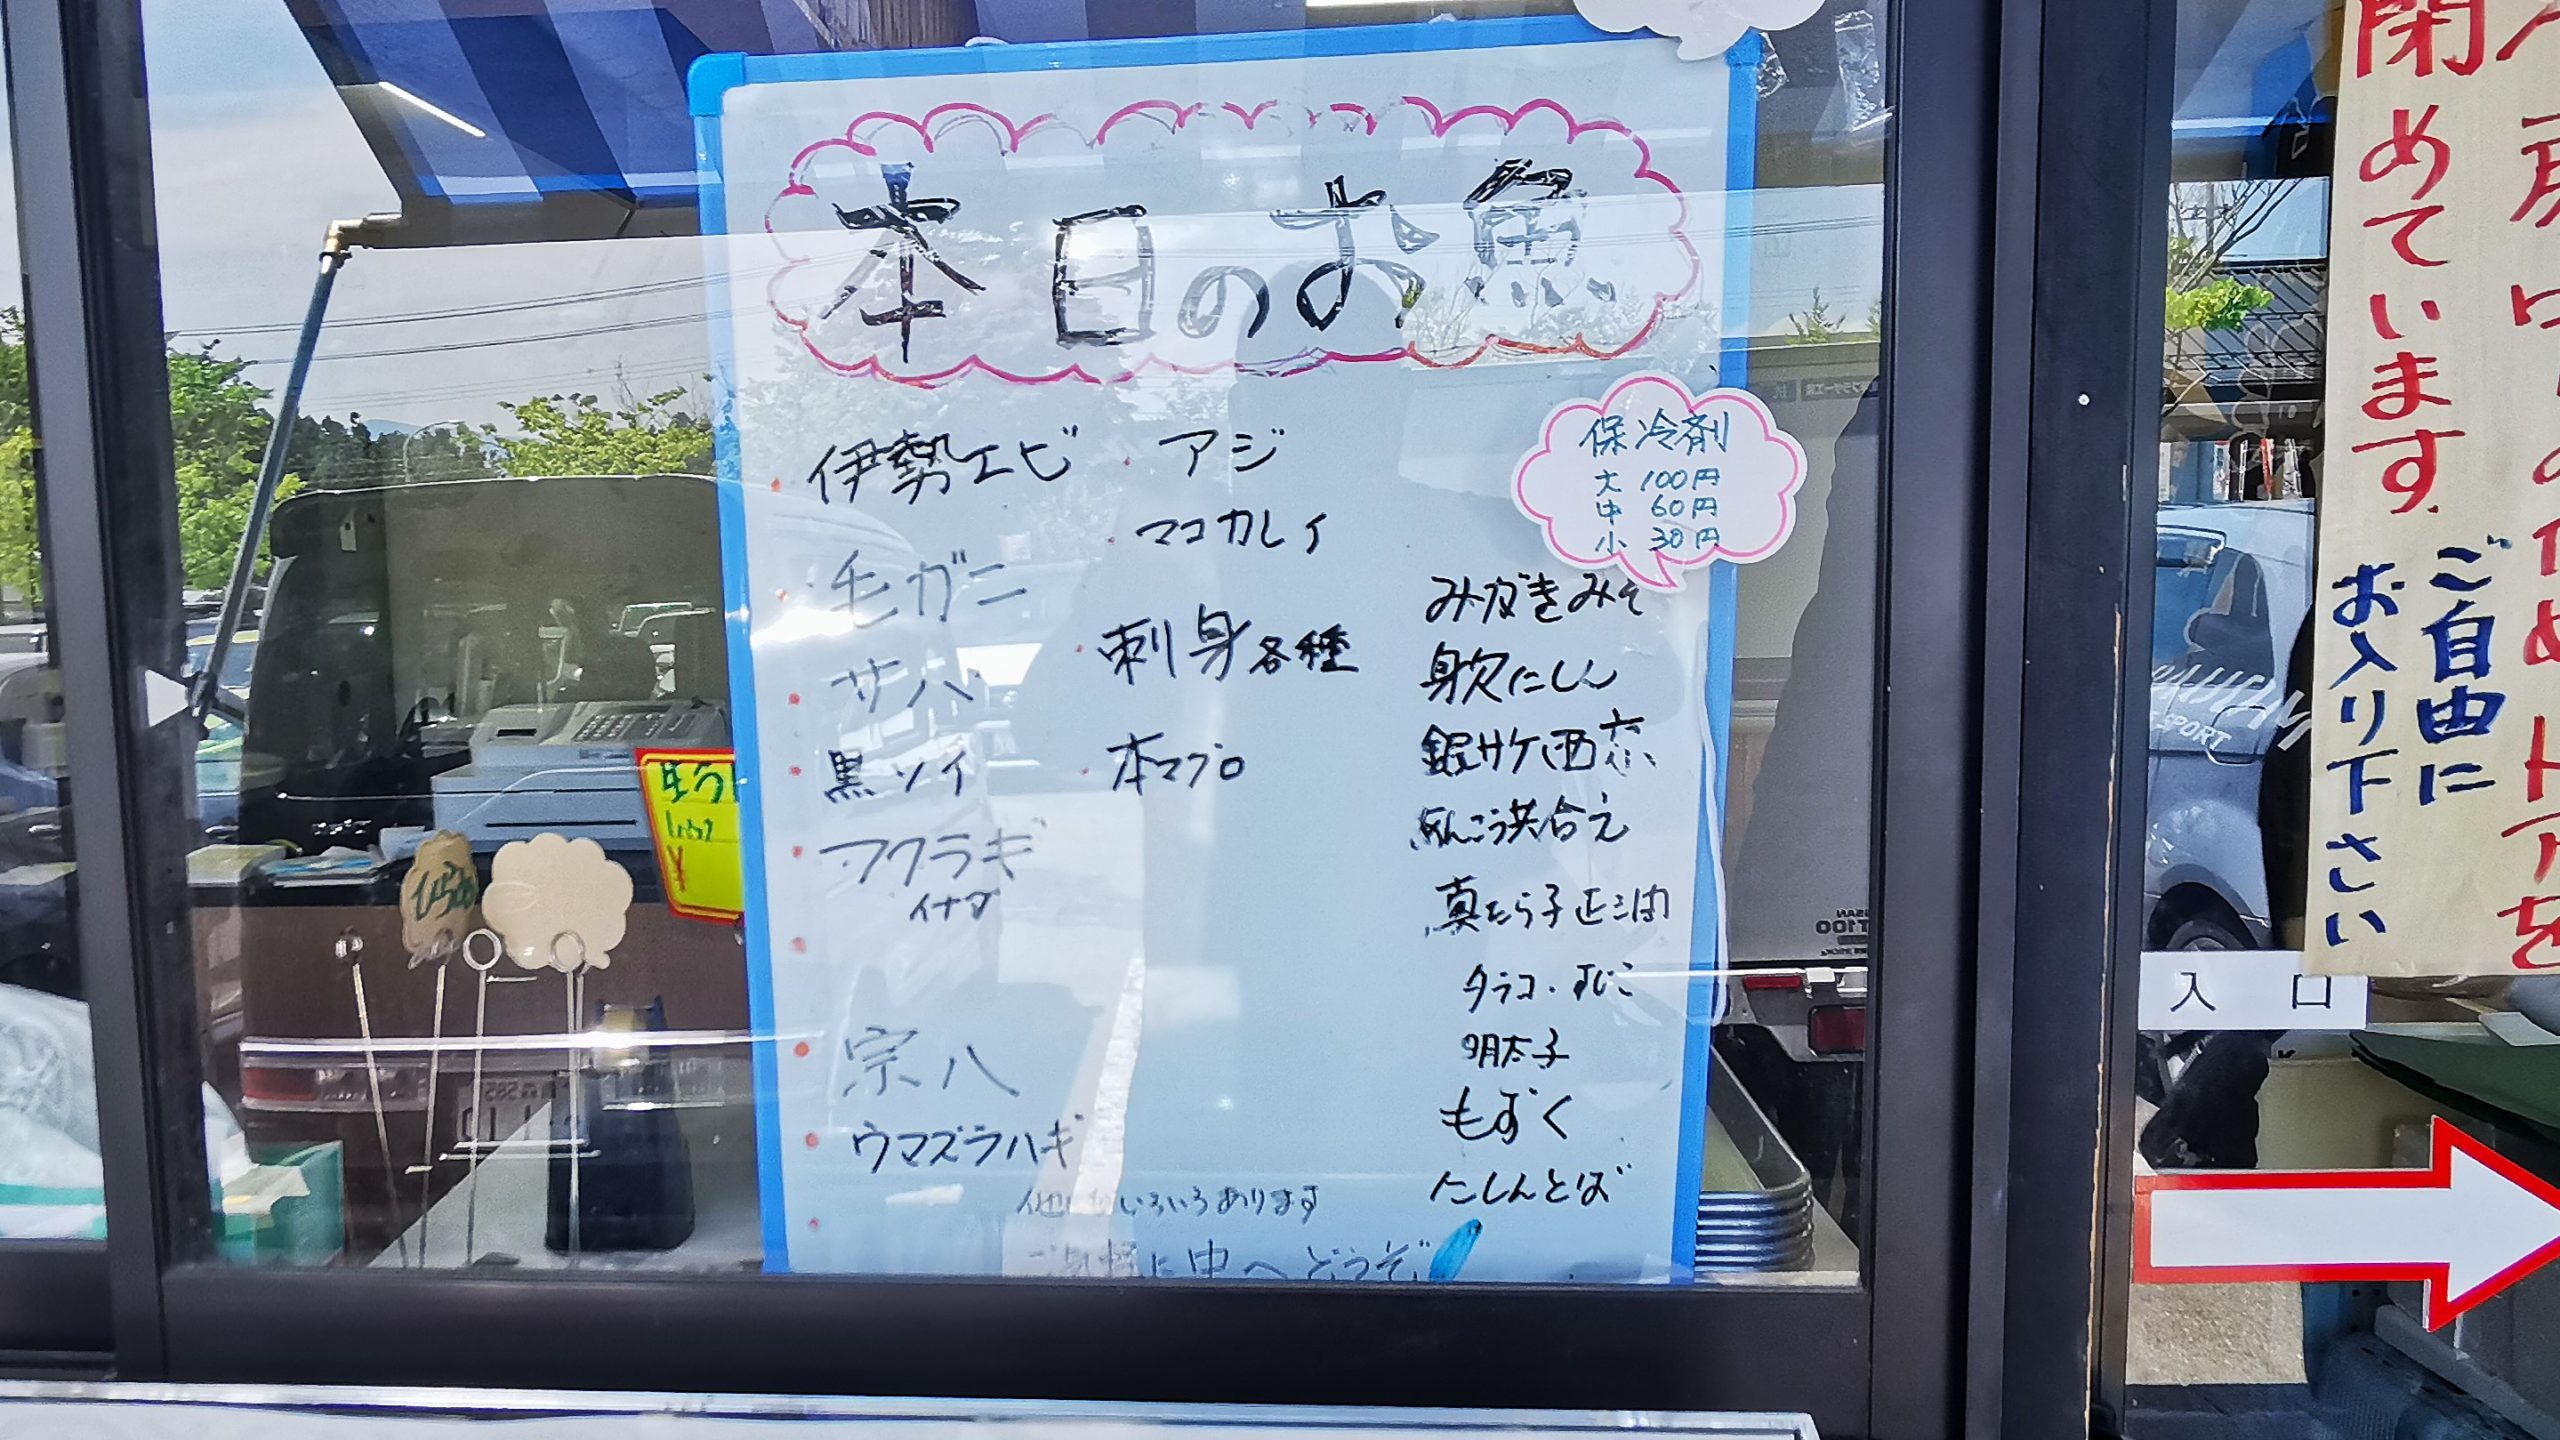 本日のお魚
伊勢エビ
毛ガニ
サバ
黒ソイ
フクラギ
イナダ
宗八
ウマズラハギ
アジ
マコカレイ
刺身各種
本マグロ
他にもいろいろあります
ご気軽に中へどうぞ
保冷剤
大 100円
中 60円
小 30円
みがきみそ
身欠にしん
銀サケ西京
あんこう共合え
真たら子正油
タラコ・すじこ
明太子
もずく
にしんとば
ひらめ
生う
¥
冷房中のためドアを
閉めています。
ご自由に
お入り下さい
入口